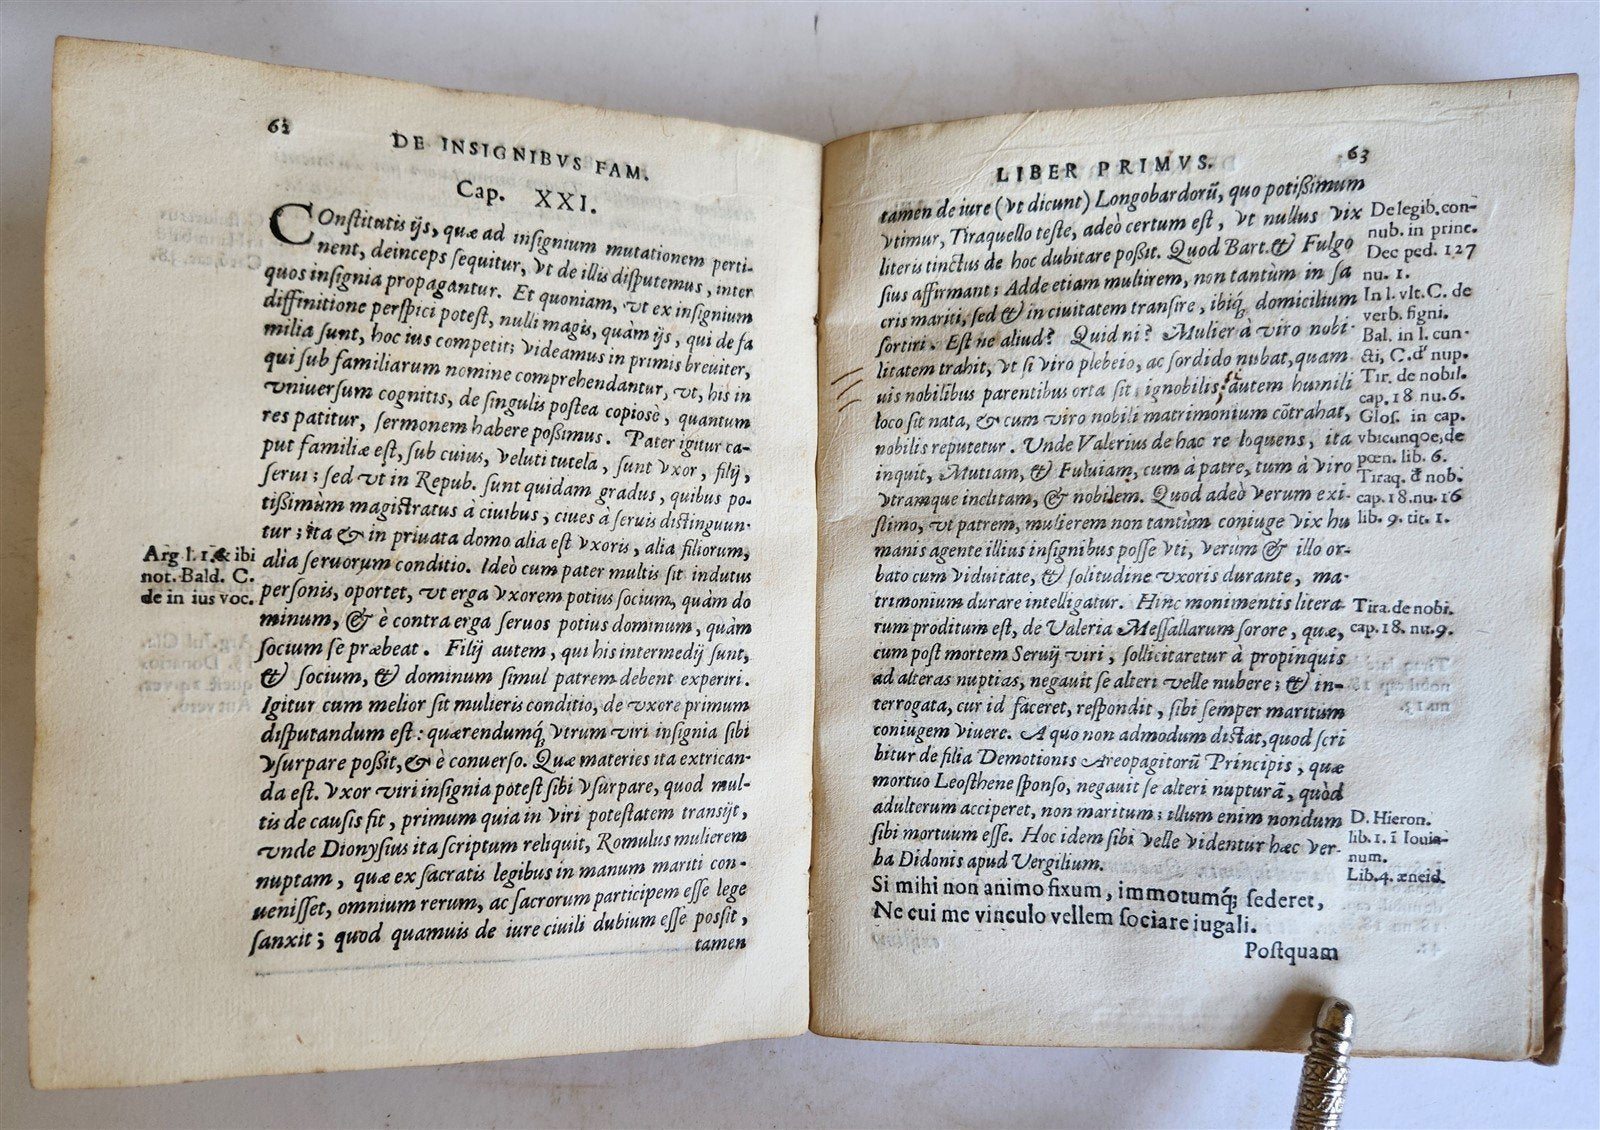 62
DE INSIGNIBVS FAM.
Cap. XXI.
COnſtitutis ijs, quæ ad inſignium mutationem perti-
nent, deinceps ſequitur, vt de illis diſputemus, inter
quos inſignia propagantur. Et quoniam, vt ex inſignium
diffinitione perſpici poteſt, nulli magis, quàm ijs, qui de fa
milia ſunt, hoc ius competit; videamus in primis breuiter,
qui ſub familiarum nomine comprehendantur, vt, his in
vniuerſum cognitis, de ſingulis poſtea copiosè, quantum
res patitur, ſermonem habere poſſimus. Pater igitur ca-
put familiæ eſt, ſub cuius, veluti tutela, ſunt vxor, filij,
ſerui; ſed vt in Repub. ſunt quidam gradus, quibus po-
tiſſimùm magiſtratus à ciuibus, ciues à ſeruis diſtinguun-
tur; ita & in priuata domo alia eſt vxoris, alia filiorum,
alia ſeruorum conditio. Ideò cum pater multis ſit indutus
perſonis, oportet, vt erga vxorem potius ſocium, quàm do
minum, & è contra erga ſeruos potius dominum, quàm
ſocium ſe præbeat. Filij autem, qui his intermedij ſunt,
& ſocium, & dominum ſimul patrem debent experiri.
Igitur cum melior ſit mulieris conditio, de vxore primum
diſputandum eſt: quærendumq́; vtrum viri inſignia ſibi
vſurpare poſſit, & è conuerſo. Quæ materies ita extrican-
da eſt. Vxor viri inſignia poteſt ſibi vſurpare, quod mul-
tis de cauſis fit, primum quia in viri poteſtatem tranſijt,
vnde Dionyſius ita ſcriptum reliquit, Romulus mulierem
nuptam, quæ ex ſacratis legibus in manum mariti con-
ueniſſet, omnium rerum, ac ſacrorum participem eſſe lege
ſanxit; quod quamuis de iure ciuili dubium eſſe poſſit,
tamen
Arg l. 1. & ibi
not. Bald. C.
de in ius voc.
63
LIBER PRIMVS.
tamen de iure (vt dicunt) Longobardorũ, quo potiſſimum
vtimur, Tiraquello teſte, adeò certum eſt, vt nullus vix
literis tinctus de hoc dubitare poſſit. Quod Bart. & Fulgo
ſius affirmant; Adde etiam mulirem, non tantùm in ſa
cris mariti, ſed & in ciuitatem tranſire, ibiq́; domicilium
ſortiri. Eſt ne aliud? Quid ni? Mulier à viro nobi-
litatem trahit, vt ſi viro plebeio, ac ſordido nubat, quam
uis nobilibus parentibus orta ſit, ignobilis; autem humili
loco ſit nata, & cum viro nobili matrimonium cõtrahat,
nobilis reputetur. Vnde Valerius de hac re loquens, ita
inquit, Mutiam, & Fuluiam, cum à patre, tum à viro
vtramque inclitam, & nobilem. Quod adeò verum exi-
ſtimo, vt patrem, mulierem non tantùm coniuge vix hu
manis agente illius inſignibus poſſe vti, verum & illo or-
bato cum viduitate, & ſolitudine vxoris durante, ma-
trimonium durare intelligatur. Hinc monimentis litera-
rum proditum eſt, de Valeria Meſſallarum ſorore, quæ,
cum poſt mortem Seruij viri, ſollicitaretur à propinquis
ad alteras nuptias, negauit ſe alteri velle nubere; & in-
terrogata, cur id faceret, reſpondit, ſibi ſemper maritum
coniugem viuere. A quo non admodum diſtat, quod ſcri
bitur de filia Demotionis Areopagitorũ Principis, quæ
mortuo Leoſthene ſponſo, negauit ſe alteri nupturã, quòd
adulterum acciperet, non maritum; illum enim nondum
ſibi mortuum eſſe. Hoc idem ſibi velle videntur hæc ver-
ba Didonis apud Vergilium.
Si mihi non animo fixum, immotumq́; ſederet,
Ne cui me vinculo vellem ſociare iugali.
Poſtquam
De legib. con-
nub. in princ.
Dec ped. 127
nu. 1.
In l. vlt. C. de
verb. ſigni.
Bal. in l. cun-
cti, C. d' nup.
Tir. de nobil.
cap. 18 nu. 6.
Gloſ. in cap.
vbicunqoe, de
pœn. lib. 6.
Tiraq. d' nob.
cap. 18. nu. 16
lib. 9. tit. 1.
Tira. de nobi.
cap. 18. nu. 9.
D. Hieron.
lib. 1. ĩ Iouia-
num.
Lib. 4. æneid.